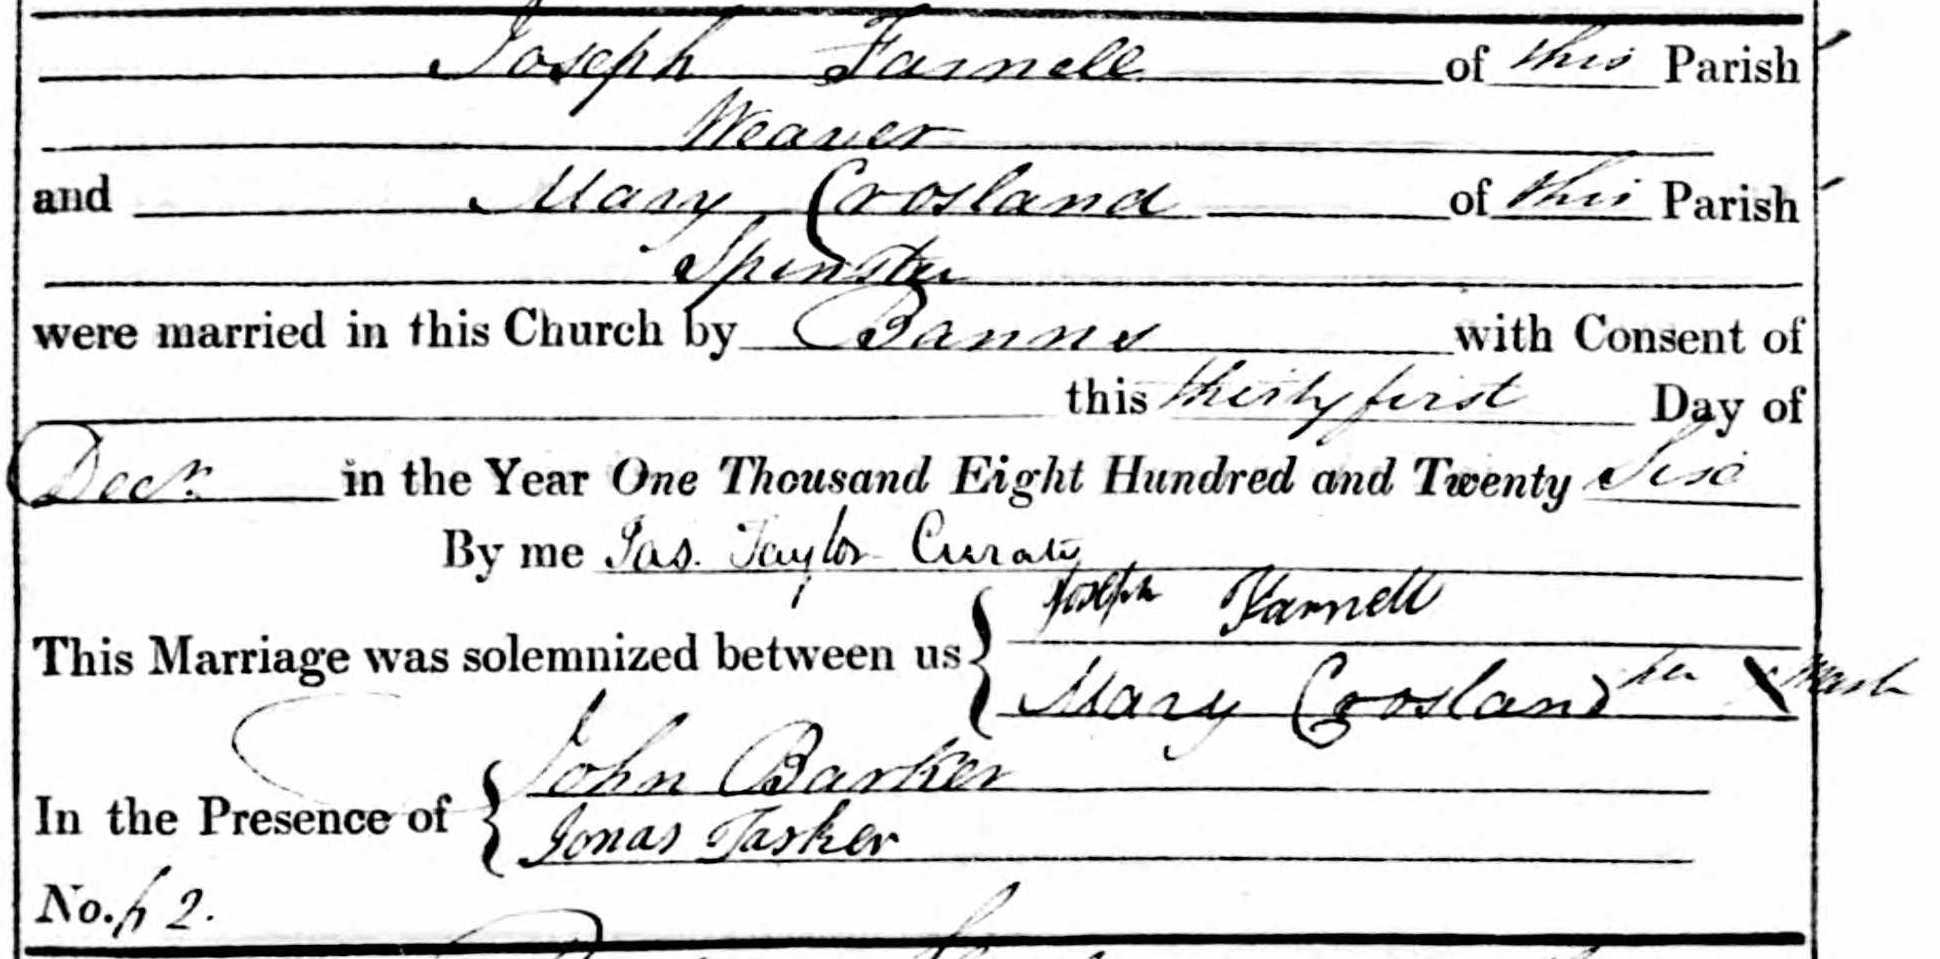 Joseph Farnell of this Parish
Weaver
and Mary Crosland of this Parish
Spinster
were married in this Church by Banns with Consent of
this thirty first Day of
Decr. in the Year One Thousand Eight Hundred and Twenty Six
By me Jas. Taylor Curate
Joseph Farnell
This Marriage was solemnized between us
Mary Crosland her X Mark
John Barker
In the Presence of
Jonas Tasker
No. 2.